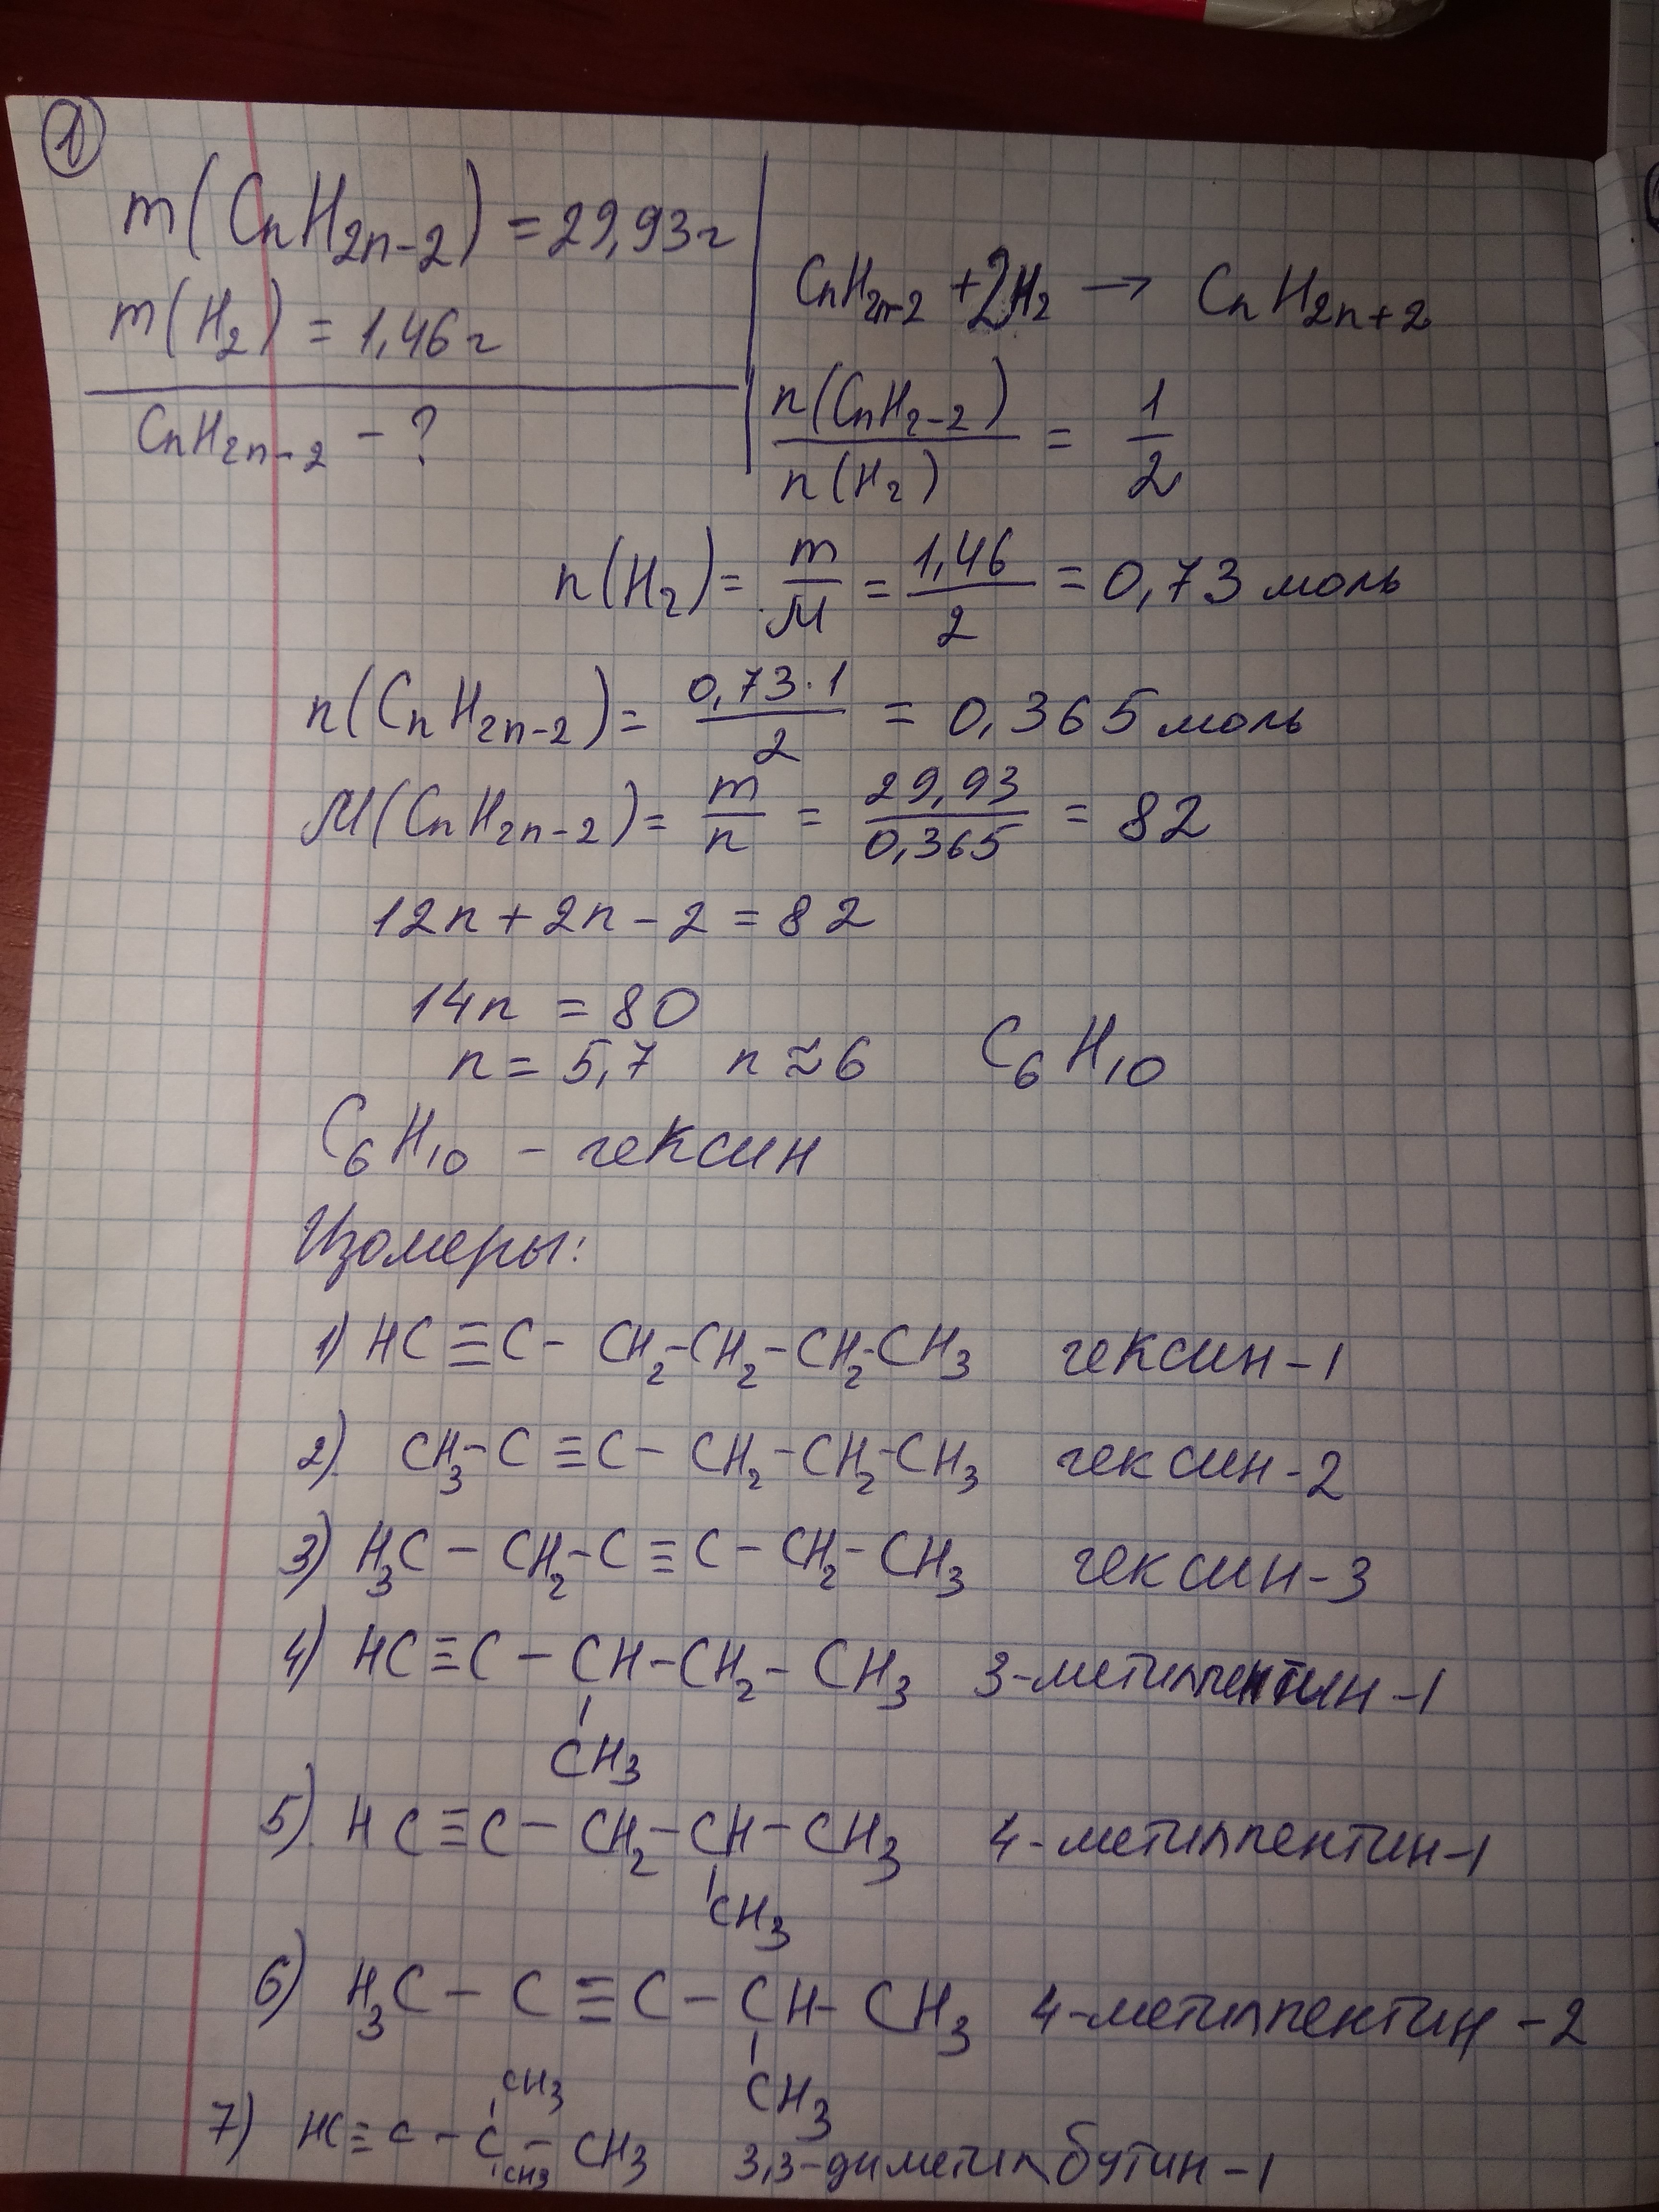 1
m(CnH2n-2) = 29,93г
m(H2) = 1,46г
CnH2n-2 - ?
CnH2n-2 + 2H2 → CnH2n+2
n(CnH2-2) / n(H2) = 1/2
n(H2) = m/M = 1,46/2 = 0,73 моль
n(CnH2n-2) = 0,73·1/2 = 0,365 моль
M(CnH2n-2) = m/n = 29,93/0,365 = 82
12n + 2n - 2 = 82
14n = 80
n = 5,7 n ≈ 6 C6H10
C6H10 - гексин
Изомеры:
1) HC≡C-CH2-CH2-CH2-CH3 гексин-1
2) CH3-C≡C-CH2-CH2-CH3 гексин-2
3) H3C-CH2-C≡C-CH2-CH3 гексин-3
4) HC≡C-CH-CH2-CH3 3-метилпентин-1
CH3
5) HC≡C-CH2-CH-CH3 4-метилпентин-1
CH3
6) H3C-C≡C-CH-CH3 4-метилпентин-2
CH3
CH3
7) HC≡C-C-CH3 3,3-диметилбутин-1
CH3